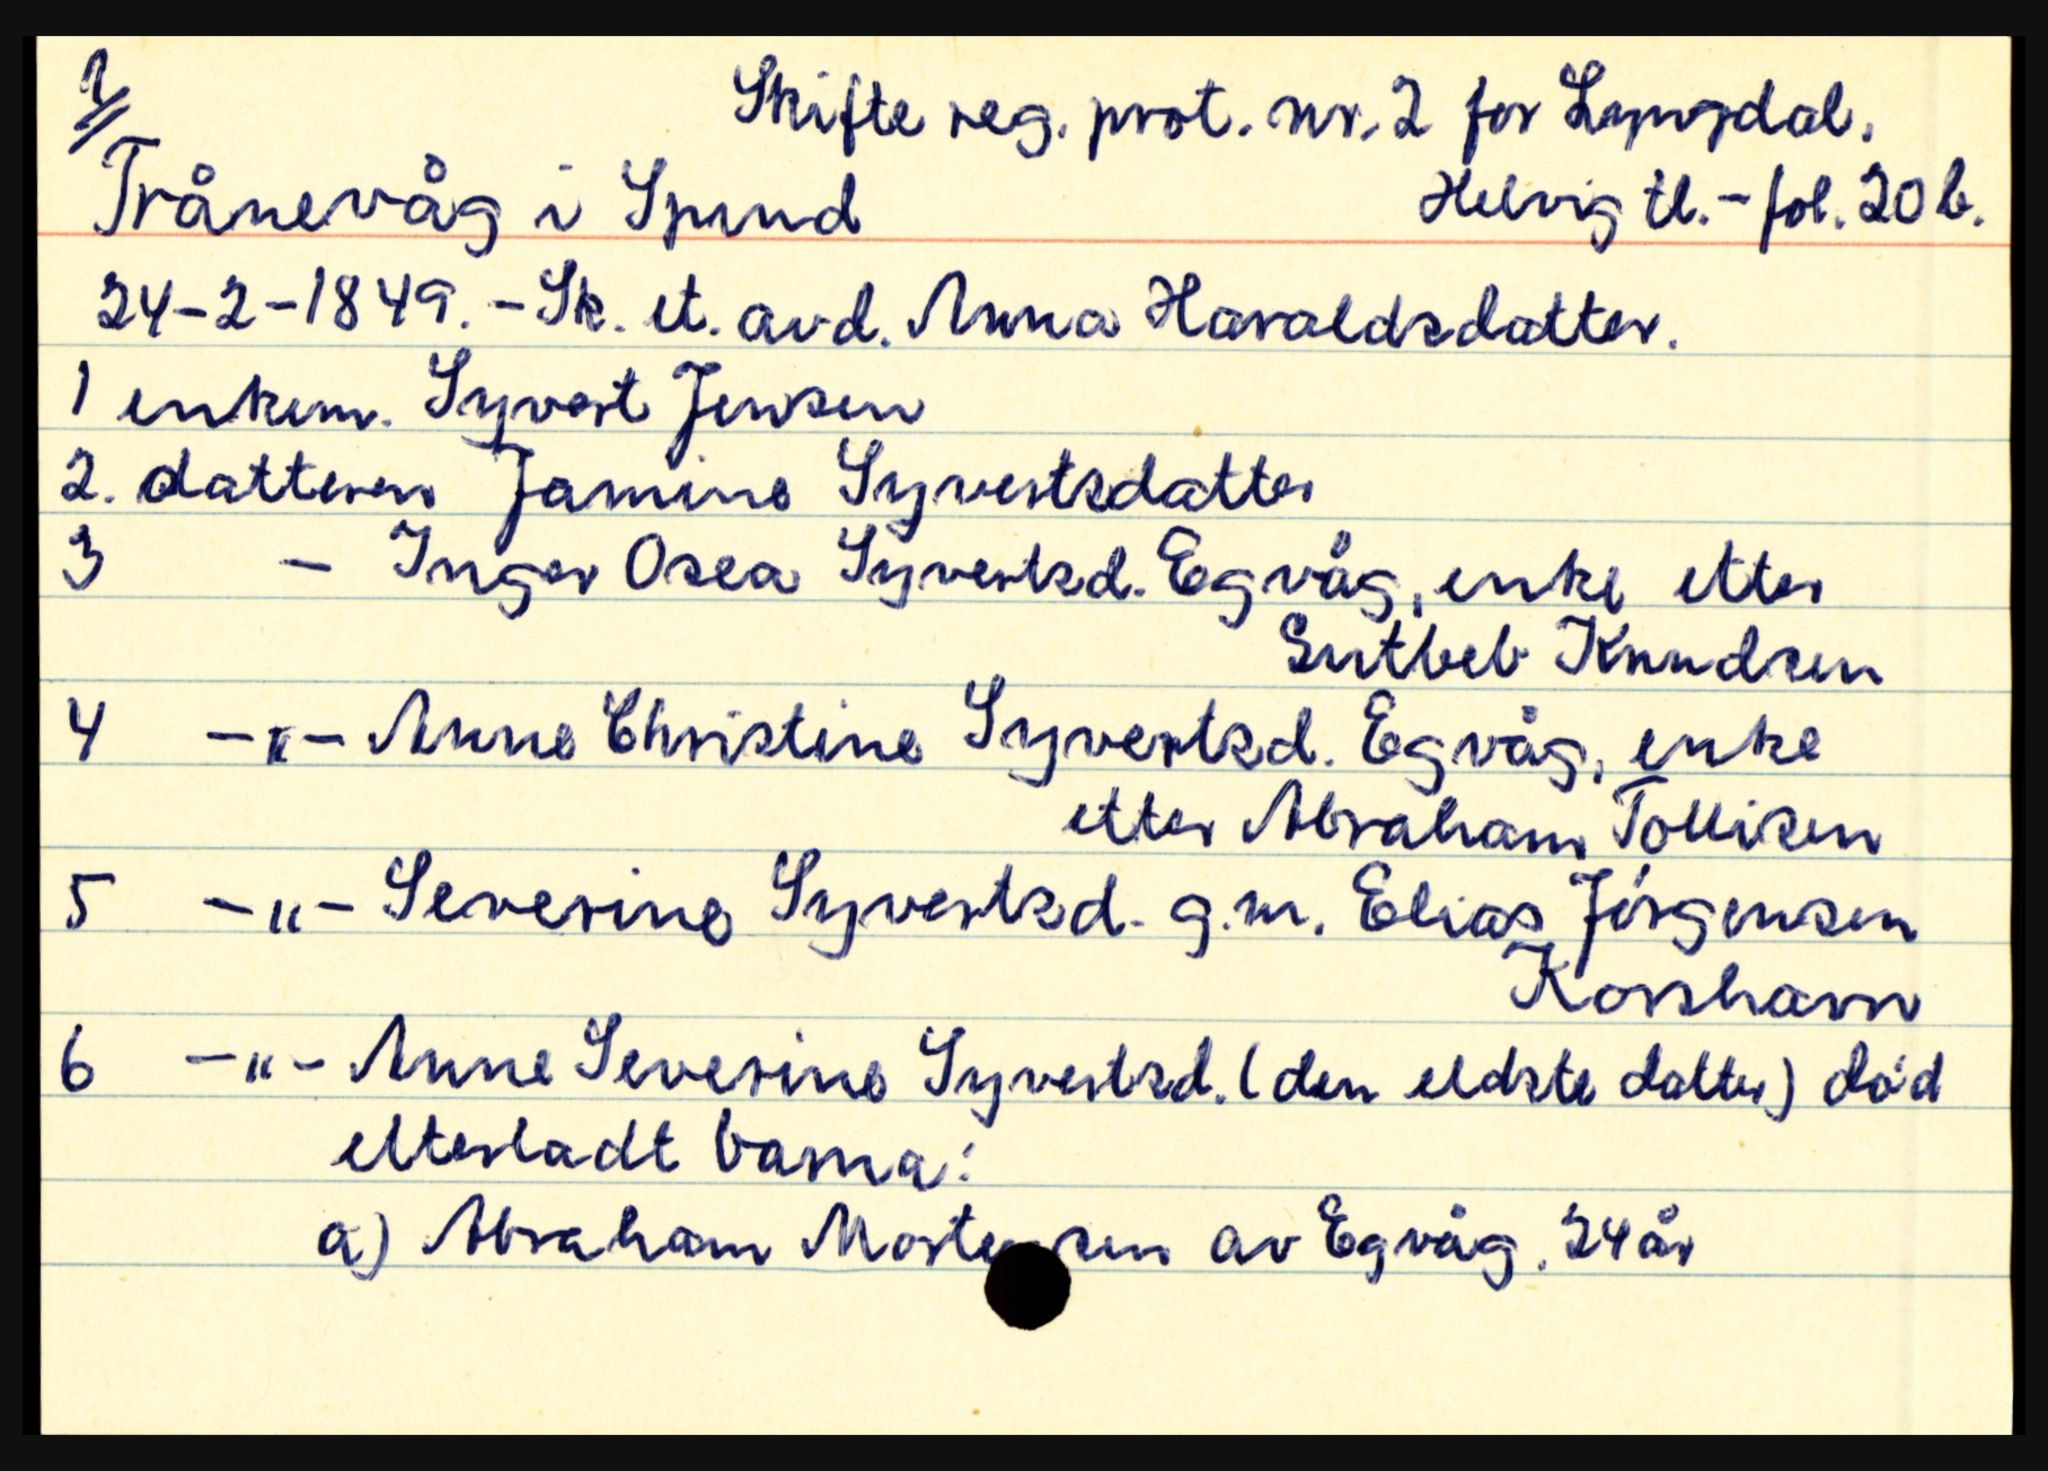 1/
Skifte reg. prot. nr. 2 for Lyngdal.
Trånevåg i Spind
Helvig tl. - fol. 20 b.
24-2-1849. - Sk. et. avd. Anna Haraldsdatter.
1 enkem. Syvert Jensen
2. datteren Jamine Syvertsdatter
3 - Inger Osea Syvertsd. Egvåg, enke etter
Gutleb Knudsen
4 -"- Anne Christine Syvertsd. Egvåg, enke
etter Abraham Tollisen
5 -"- Severine Syvertsd. g.m. Elias Jörgensen
Korshavn
6 -"- Anne Severine Syvertsd. (den eldste datter) död
etterladt barna:
a) Abraham Mortensen av Egvåg. 24 år